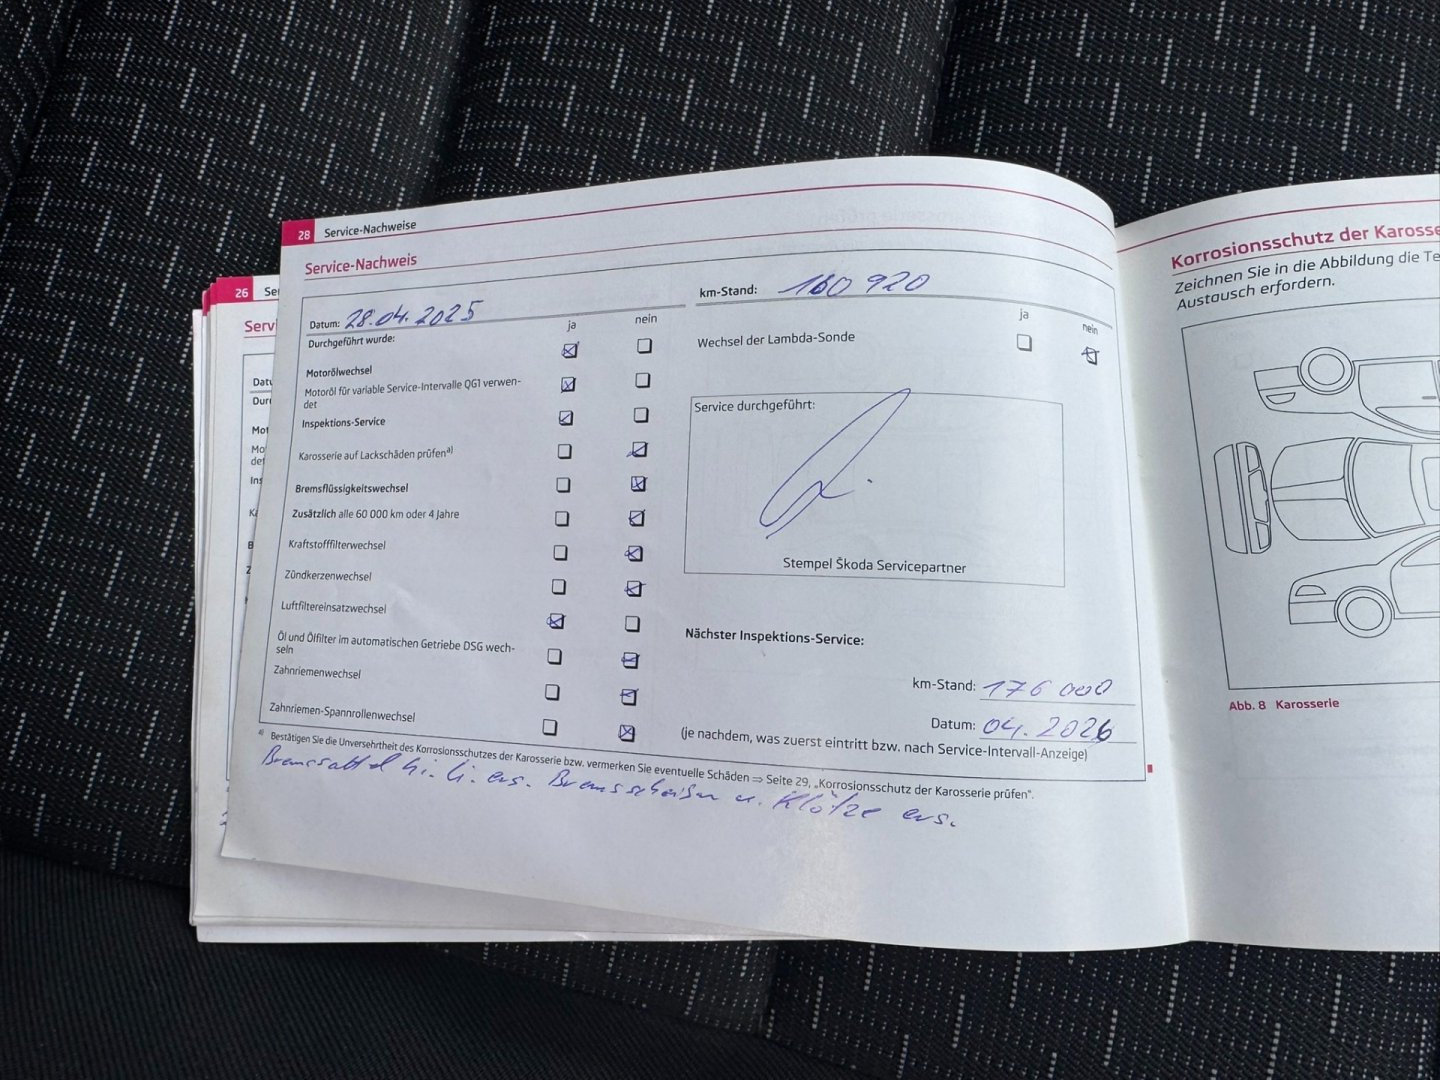 28 Service-Nachweise
Service-Nachweis
Datum: 28.04.2025
km-Stand: 160 920
Durchgeführt wurde:
ja nein
Motorölwechsel
Motoröl für variable Service-Intervalle QG1 verwen-
det
Inspektions-Service
Karosserie auf Lackschäden prüfen a)
Bremsflüssigkeitswechsel
Zusätzlich alle 60 000 km oder 4 Jahre
Kraftstofffilterwechsel
Zündkerzenwechsel
Luftfiltereinsatzwechsel
Öl und Ölfilter im automatischen Getriebe DSG wech-
seln
Zahnriemenwechsel
Zahnriemen-Spannrollenwechsel
ja nein
Wechsel der Lambda-Sonde
Service durchgeführt:
Stempel Škoda Servicepartner
Nächster Inspektions-Service:
km-Stand: 176 000
Datum: 04.2026
(je nachdem, was zuerst eintritt bzw. nach Service-Intervall-Anzeige)
a) Bestätigen Sie die Unversehrtheit des Korrosionsschutzes der Karosserie bzw. vermerken Sie eventuelle Schäden ⇒ Seite 29, „Korrosionsschutz der Karosserie prüfen“.
hi. li. ers. Bremsscheiben u. Klötze ers.
26 Se
Serv
Datu
Durc
Mot
Mo
det
Ins
Ka
B
Z
Korrosionsschutz der Karosse
Zeichnen Sie in die Abbildung die Te
Austausch erfordern.
Abb. 8 Karosserie